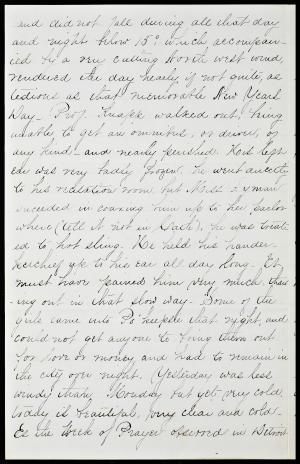 and did not fall during all that day
and night below 15° which, accompan-
ied by a very cutting North west wind,
rendered the day nearly, if not quite, as
tedious as that memorable New Years
Day - Prof. Knapp walked out, being
unable to get an omnibus, or driver, of
any kind - and nearly perished. His left
ear was very badly frozen. He went directly
to his recitation room, but Miss Lyman
succeeded in coaxing him up to her parlor
where (tell it not in Gath), he was treat-
ed to hot sling. He held his hander-
kerchief up to his ear all day long. It
must have pained him very much, thaw-
ing out in that slow way. Some of the
girls came into Po'keepsie that night, and
could not get anyone to bring them out
for love or money and had to remain in
the city over night. (Yesterday was less
windy than Monday but yet very cold.
today is beautiful, very clear and cold -
Is the Week of Prayer observed in Detroit